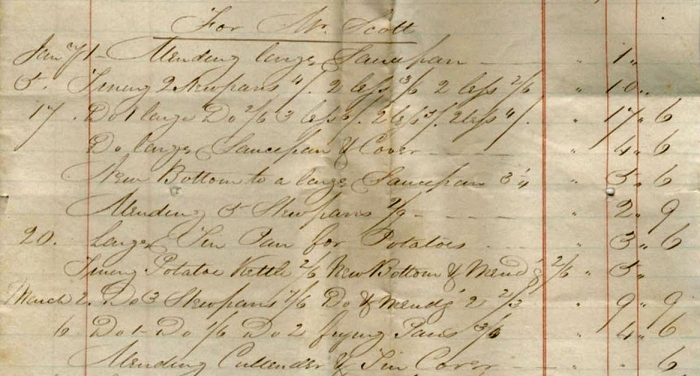 For Mr. Scott
Jany 1 - Mending large Saucepan - " 1 "
5. Tining 2 Stewpans 4/. 2 less 3/6 2 less 2/6 " 10 "
17. Do 1 large Do 2/6 3 less 2 less 3/. 2 less 4/. " 17 " 6
Do large Saucepan & Cover " 4 " 6
New Bottom to a large Saucepan " 5 " 6
Mending 5 Stewpans 2/9 - " 2 " 9
20. Large Tin Pan for Potatoes " 3 " 6
Tining Potatoe Kettle 2/6 New Bottom & Mendg 2/6 " 5 "
March 2. Do 3 Stewpans 7/6 Do & Mendg 2 2/3 " 9 " 9
6 Do 1 Do 1/6 Do 2 frying Pans 3/6 " 4 " 6
Mending Cullender & Tin Cover " " 6